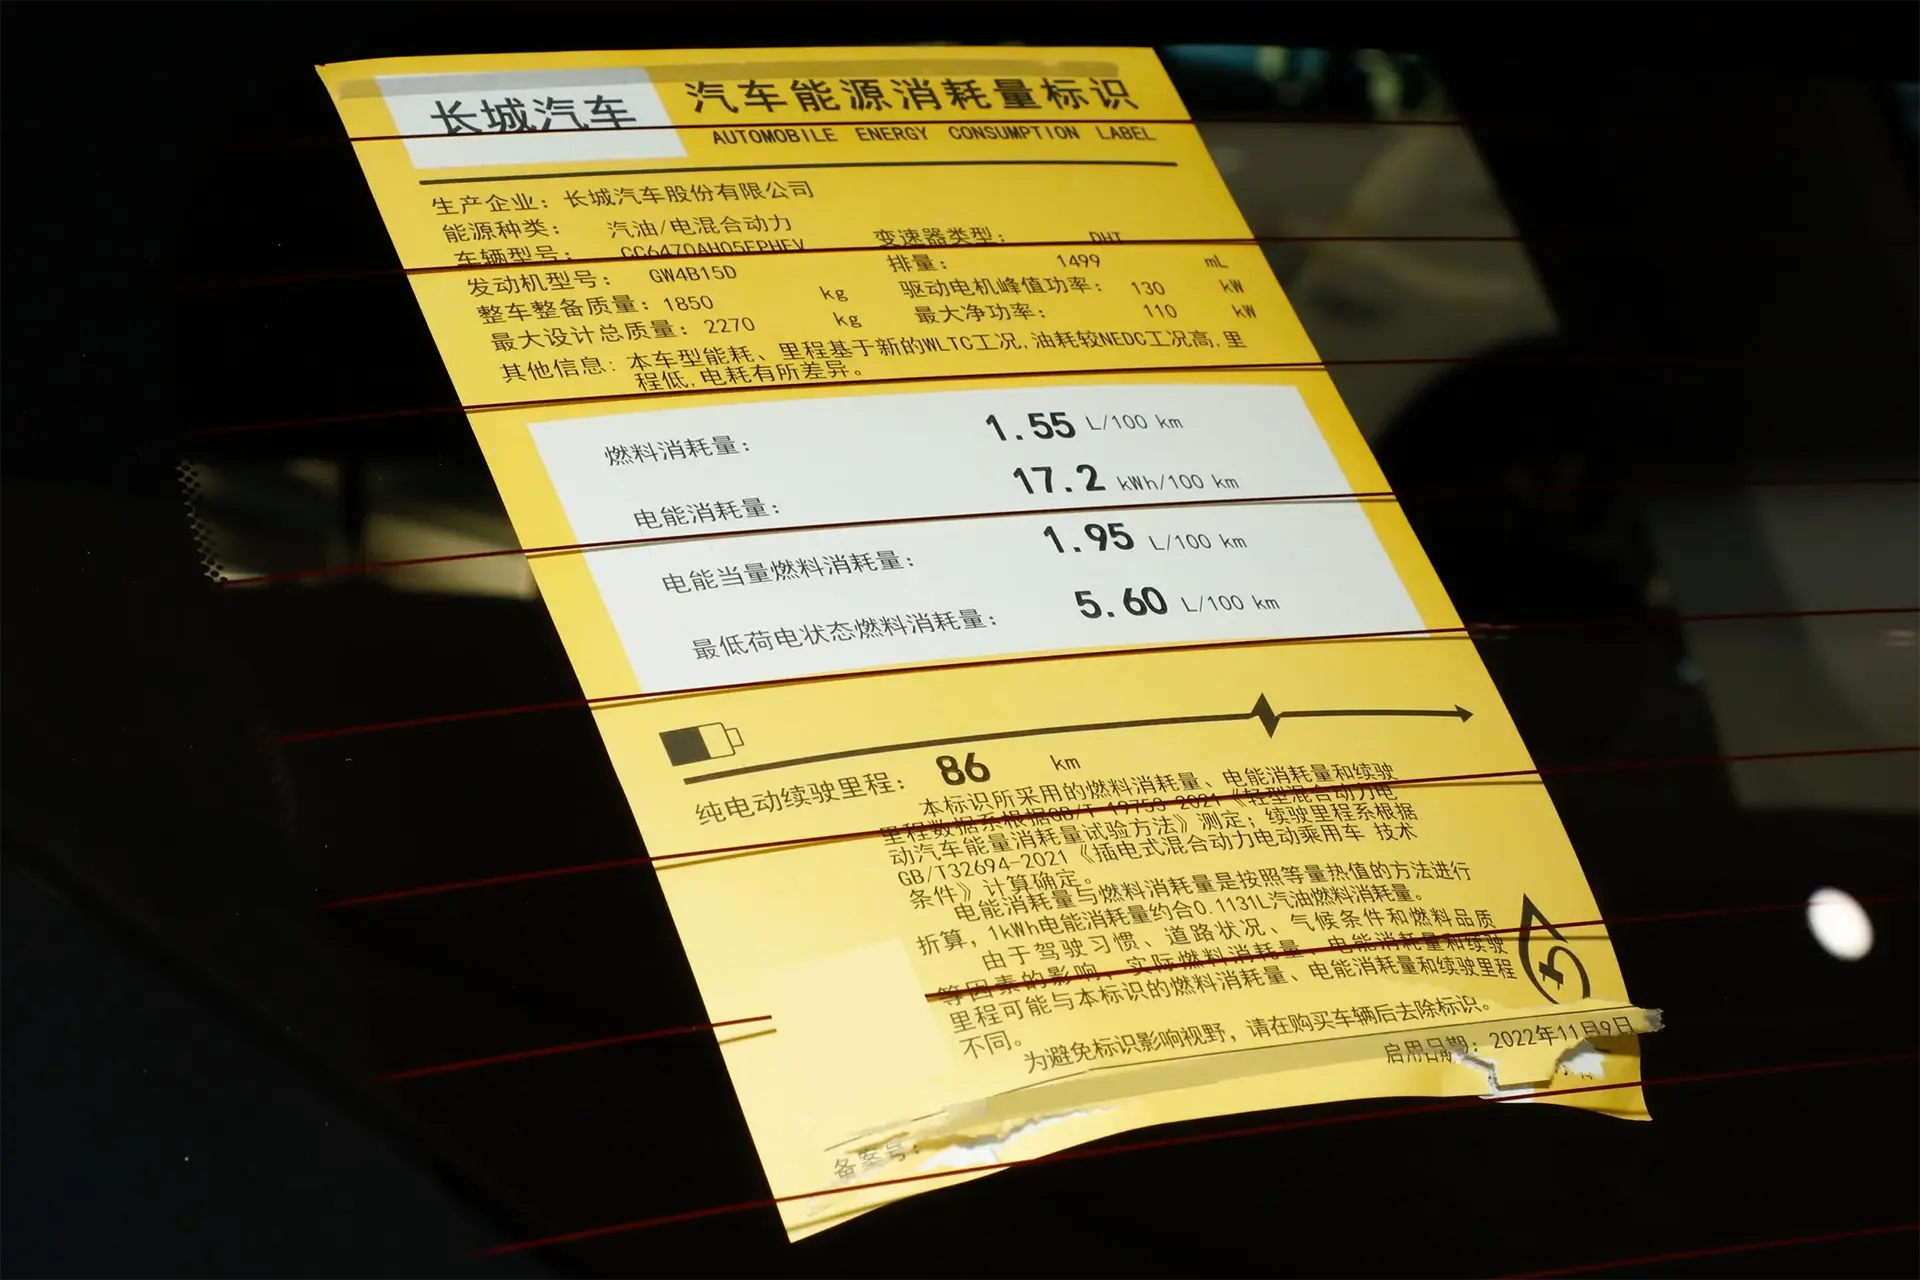 长城汽车
汽车能源消耗量标识
AUTOMOBILE ENERGY CONSUMPTION LABEL
生产企业: 长城汽车股份有限公司
能源种类: 汽油/电混合动力
车辆型号: CC6470AH05EPHEV 变速器类型: DHT
发动机型号: GW4B15D 排量: 1499 mL
整车整备质量: 1850 kg 驱动电机峰值功率: 130 kW
最大设计总质量: 2270 kg 最大净功率: 110 kW
其他信息: 本车型能耗、里程基于新的WLTC工况,油耗较NEDC工况高,里
程低,电耗有所差异。
燃料消耗量: 1.55 L/100 km
电能消耗量: 17.2 kWh/100 km
电能当量燃料消耗量: 1.95 L/100 km
最低荷电状态燃料消耗量: 5.60 L/100 km
纯电动续驶里程: 86 km
本标识所采用的燃料消耗量、电能消耗量和续驶
里程数据系根据GB/T 19753-2021《轻型混合动力电
动汽车能量消耗量试验方法》测定; 续驶里程系根据
GB/T32694-2021《插电式混合动力电动乘用车 技术
条件》计算确定。
电能消耗量与燃料消耗量是按照等量热值的方法进行
折算, 1kWh电能消耗量约合0.1131L汽油燃料消耗量。
由于驾驶习惯、道路状况、气候条件和燃料品质
等因素的影响, 实际燃料消耗量、电能消耗量和续驶
里程可能与本标识的燃料消耗量、电能消耗量和续驶里程
不同。
为避免标识影响视野, 请在购买车辆后去除标识。
启用日期: 2022年11月9日
备案号: